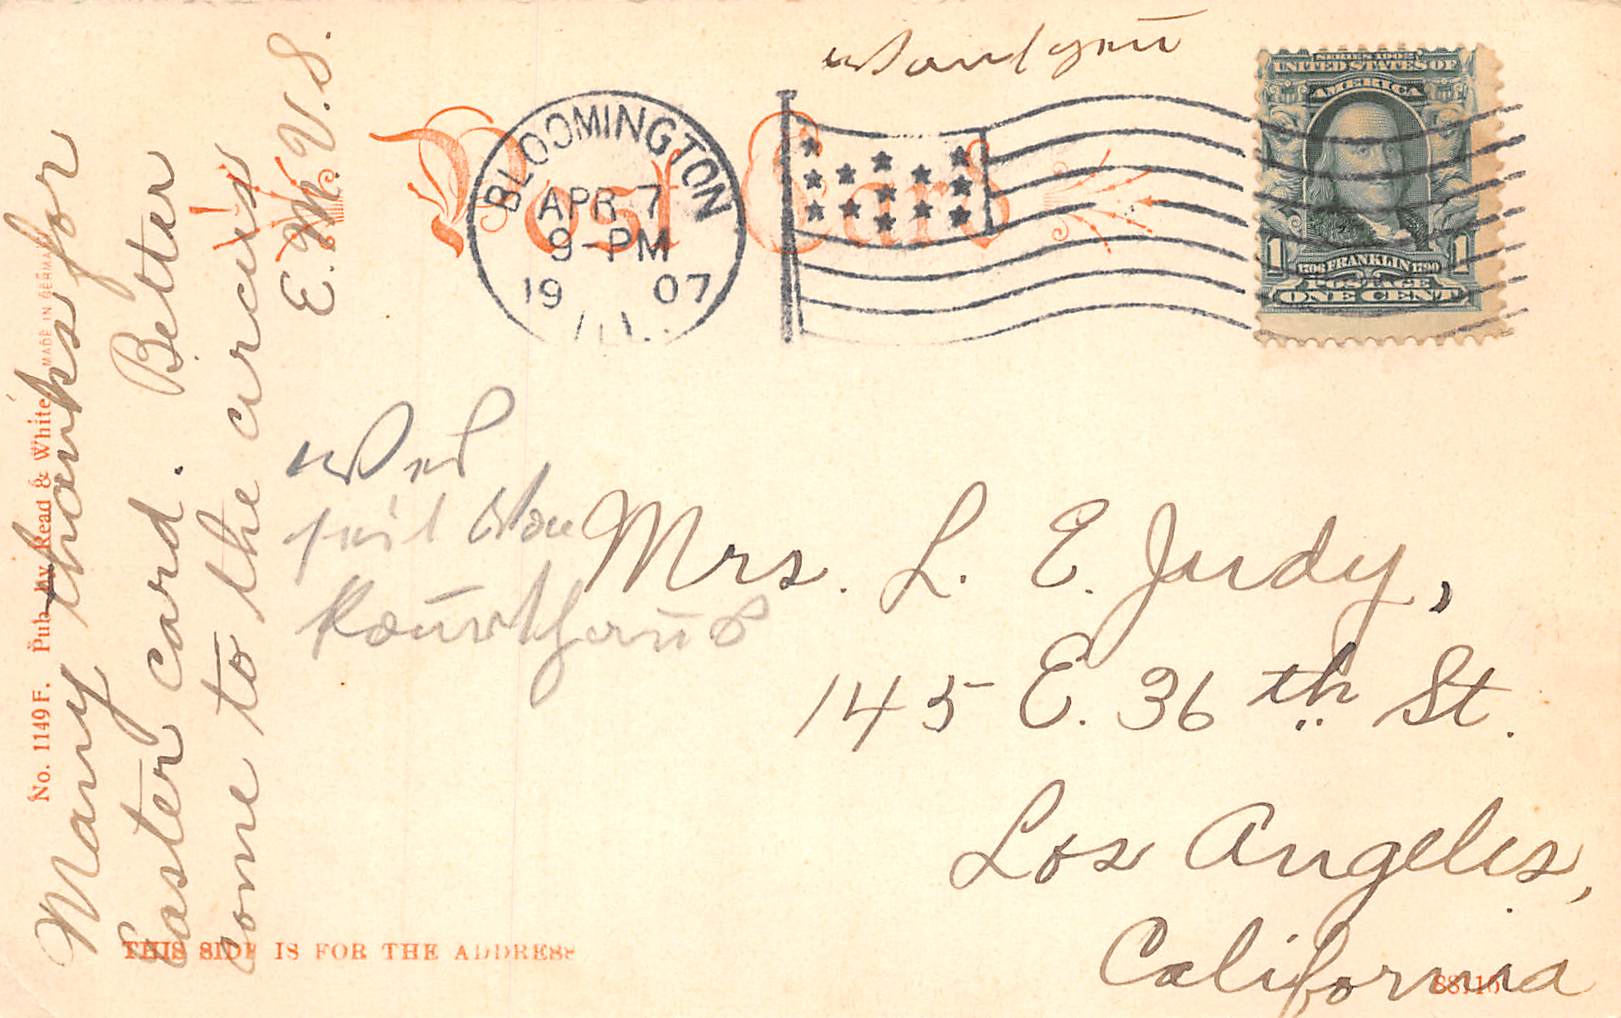 Many thanks for
Easter card. Better
come to the circus
E. M. V. S.
No. 1149 F. Pub. by Read & White MADE IN GERMA
Post Card
BLOOMINGTON
APR 7
9-PM
1907
ILL.
SERIES 1902
UNITED STATES OF
AMERICA
1 1706 FRANKLIN 1790 1
POSTAGE
ONE CENT
Mrs. L. E. Judy,
145 E. 36th St.
Los Angeles,
California
THIS SIDE IS FOR THE ADDRESS